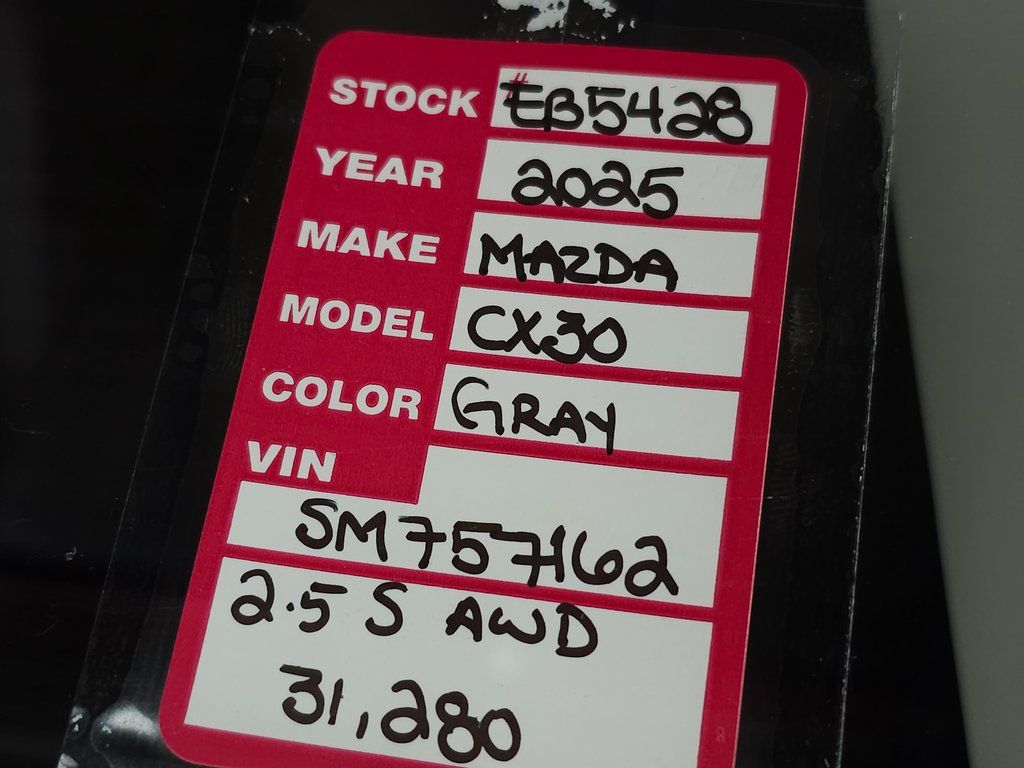 STOCK #EB5428
YEAR 2025
MAKE MAZDA
MODEL CX30
COLOR GRAY
VIN
SM757162
2.5 S AWD
31,280